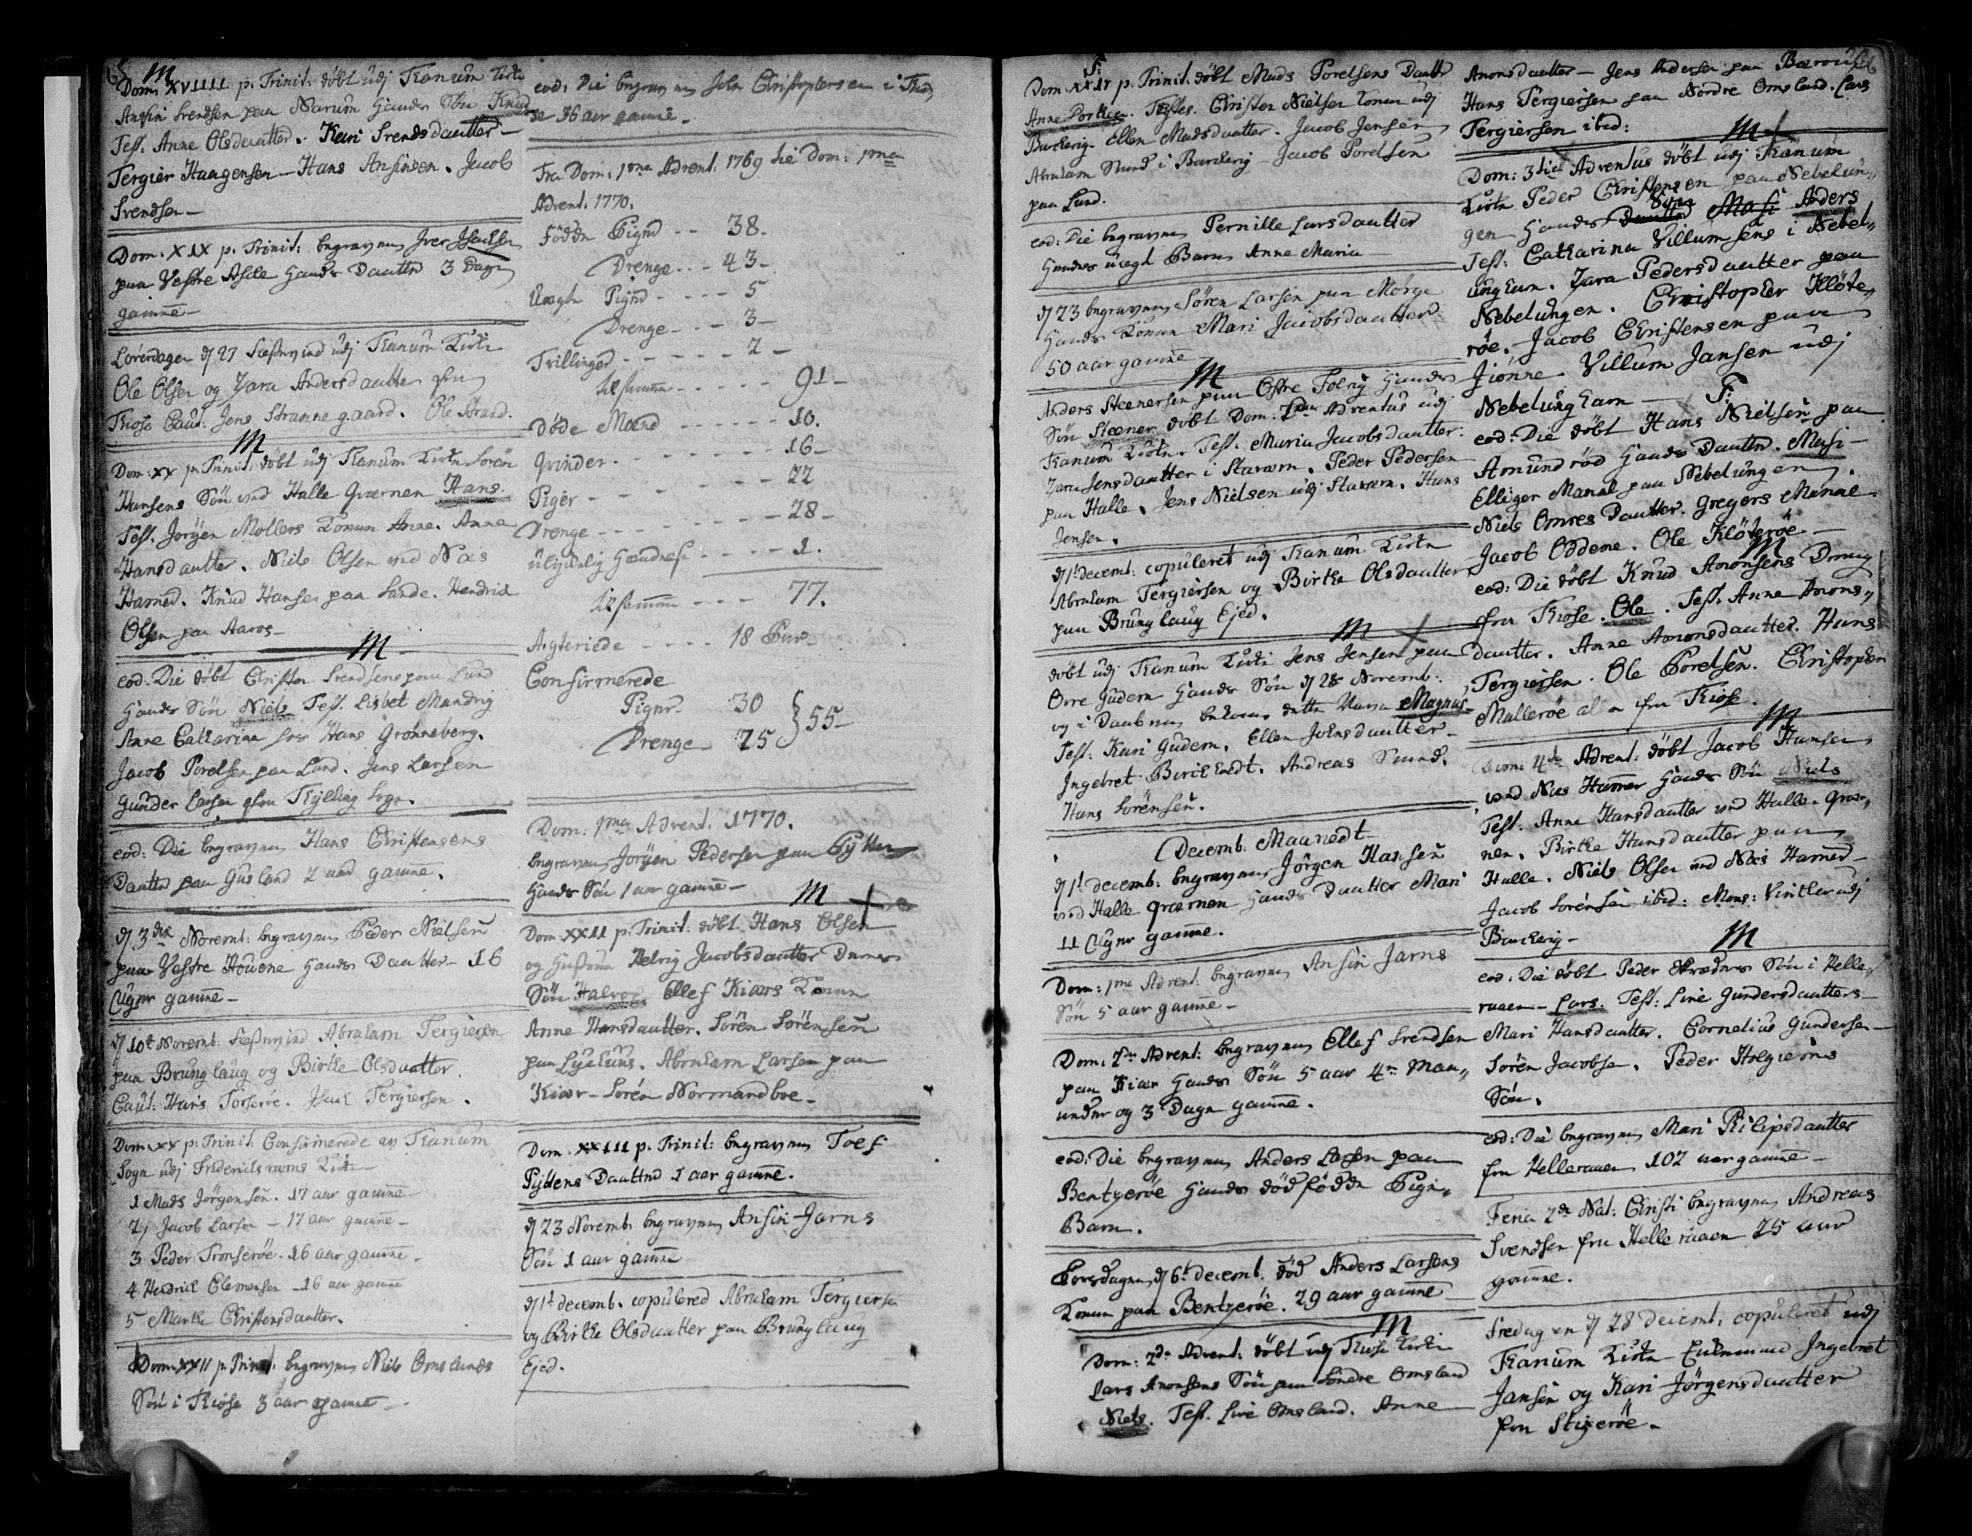 M
Dom: XVIIII p. Trinit. döbt udj Tanum Kirke
Ansin Svendsen paa Narum hands Sön Knud
Test. Anne Olsdautter. Kari Svendsdautter
Tergier Haagensen - Hans Ansinsen. Jacob
Svendsen -
Dom. XIX p. Trinit: begraven Iver Isachsen
paa Vestre Aske hands Dautter 3 Dage
gamme
Löverdagen d 27 udj Tanum Kirke
Ole Olsen og Zara Andersdautter
Kiose Caut: Jens Strannegaard. Ole Strand.
M
Dom: XX p. Trinit: döbt udj Tanum Kirke Sören
Hansens Sön ved Halle Qværnen Hans
Test. Jörgen Mollers Konne Anne. Anne
Hansdautter. Niels Olsen ved Næs
Hamed. Knud Hansen paa Sande. Hendrich
Olsen paa Aaros -
M
eod: Die döbt Christen Svendsens paa Lund
hands Sön Niels Test. Lisbet Mandrig
Anne Catharina Hans Grönneberg.
Jacob Porelsen paa Lund. Jens Larsen
Gunder Larsen Kylling
eod: Die begraven Hans Christensens
Dautter paa Gusland 2 aar gamme.
d 3die Novemb: begraven Peder Nielsen
paa Vestre Houene hands Dautter - 16
Uger gamme -
d 10de Novemb: Abraham Tergiersen
paa Brunglaug og Birthe Olsdautter.
Caut: Hans Torseröe. Isach Tergiersen.
Dom: XX p: Trinit Confirmerede af Tanum
Sogn udj Friderichsværns Kirke
1 Mads Jörgensen. 17 aar gamme -
2 Jacob Larsen - 17 aar gamme -
3 Peder Tronseröe. 16 aar gamme -
4 Hendrich Clemensen - 16 aar gamme
5 Marthe Christensdautter.
Dom: XXII p. Trinit begraven Niels Omslands
Sön i Kiose 3 aar gamme -
eod: Die begraven John Christophersen i
36 aar gamme -
Fra Dom: 1ma Advent. 1769 til Dom: 1ma
Advent. 1770.
Födde Pigger - - 38 -
Drenge - - 43 -
Uægte Piger - - - - 5
Drenge - - - 3 -
Tvillinger - - - - - - 2 -
til summa - - - - - 91 -
Döde Mænd - - - - - - 10.
Qvinder - - - - - - - 16 -
Piger - - - - - - - 22
Drenge - - - - - - - 28 -
ulykkelig hændelse - - - - - 1.
til summa - - - 77.
Ægteviede - - - - 18 Par -
Confirmerede
Piger 30
Drenge 25 } 55 -
Dom: 1ma Advent. 1770.
begraven Jörgen Pedersen paa
hands Sön 1 aar gamme -
M
Dom: XXII p. Trinit. döbt Hans Olsen
og Hustrue Helvig Jacobsdautter Deres
Sön Halvor Ellef Kiærs Konne
Anne Hansdautter. Sören Sörensen
paa Lyshuus. Abraham Larsen paa
Kiær - Sören Normandboe -
Dom. XXIII p. Trinit: begraven Toef
Pyttens Dautter 1 aar gamme.
d 23 Novemb. begraven Ansin Jarns
Sön 1 aar gamme -
d 1t decemb. copulered Abraham Tergiersen
og Birthe Olsdautter paa Brunglaug
Ejed.
F.
Dom XXIV p. Trinit. döbt Mads Porelsens Dautter
Anne Testes. Christen Nielsen Konne udj
Barkevig Ellen Madsdautter. Jacob Jensen
Abraham Smed i Barkevig - Jacob Porelsen
paa Lund.
eod: Die begraven Pernille Larsdautter
hendes uægte Barn Anne Maria -
d 23 begraven Sören Larsen paa Mörge
hands Konne Mari Jacobsdautter
50 aar gamme -
M
Anders Steenersen paa Östre Tolvig hands
Sön Steener döbt Dom: 1ma Adventus udj
Tanum Kirke. Test. Maria Jacobsdautter.
Zara Jensdautter i Staværn. Peder Pedersen
paa Halle. Jens Nielsen udj Staværn. Hans
Jensen.
d 1t decemb: copuleret udj Tanum Kirke
Abraham Tergiersen og Birthe Olsdautter
paa Brunglaug Ejed.
M
döbt udj Tanum Kirke Jens Jensen paa
Övre Gudem hands Sön d 28 Novemb:
og i Daaben bekom dette Navn Magnus
Test: Kari Gudem. Ellen Johnsdautter -
Ingebret Birckedt. Andreas Smed.
Hans Sörensen.
Decemb. Maanedt
d 1t decemb: begraven Jörgen Hansen
ved Halle qværnen hands Dautter Mari
11 Uger gamme.
Dom: 1ma Advent: begraven Ansin Jarns
Sön 5 aar gamme -
Dom: 2da Advent: begraven Ellef Svendsen
paa Kiær hands Sön 5 aar 4re Maa„
neder og 3 Dage gamme.
eod: Die begraven Anders Larsen paa
Bentzeröe hands dödfödde Pige„
Barn.
Torsdagen d 6t decemb. död Anders Larsens
Konne paa Bentzeröe. 29 aar gamme
M
Dom: 2da Advent: döbt udj Kiose Kirke
Lars Anonsens Sön paa Söndre Omsland
Niels. Test. Live Omsland. Anne
Anonsdautter - Jens Andersen paa
Hans Tergiersen paa Nordre Omsland. Lars
Tergiersen ibid:
M
Dom: 3tia Adventus döbt udj Tanum
Kirke Peder Christensen paa Nebelun„
gen hands Dautter Sön Masi Anders
Test: Catharina Villumsens i Nebel„
unghavn. Zara Pedersdautter paa
Nebelungen. Christopher Klöte„
röe. Jacob Christensen paa
Jionne Villum Jansen udj
Nebelunghavn -
F.
eod: Die döbt Hans Nielsen paa
Amundröd hands Dautter. Masi -
Elliger Manne paa Nebelungen.
Niels Omres Dautter. Gregers Manne
Jacob Oddene. Ole Klöteröe -
M
eod: Die döbt Knud Anonsens Dreng
fra Kiose. Ole. Test. Anne Anons„
dautter. Anne Anonsdautter. Hans
Tergiersen. Ole Porelsen. Christopher
Malleröe alle fra Kiose.
M
Dom: 4de Advent: döbt Jacob Hansen
ved Næs Hamer hands Sön Niels
Test: Anne Hansdautter ved Halle - qvær„
nen. Birthe Hansdautter paa
Halle. Niels Olsen ved Næs Hamed -
Jacob Sörensen ibid: Mons: Vintler udj
Barkevig -
M
eod: Die döbt Peder Skræders Sön i Helle„
raaen - Lars. Test: Live Gundersdautter -
Mari Hansdautter. Cornelius Gundersen -
Sören Jacobsen. Peder Holgiers
Sön.
eod: Die begraven Mari Philipsdautter
fra Helleraaen 102 aar gamme -
Feria 2da Nat: Christi begraven Andreas
Svendsen fra Helleraaen 25 aar
gamme.
Fredagen d 28 decemb: copuleret udj
Tanum Kirke Ingebret
Jansen og Kari Jörgensdautter
paa Stigeröe -